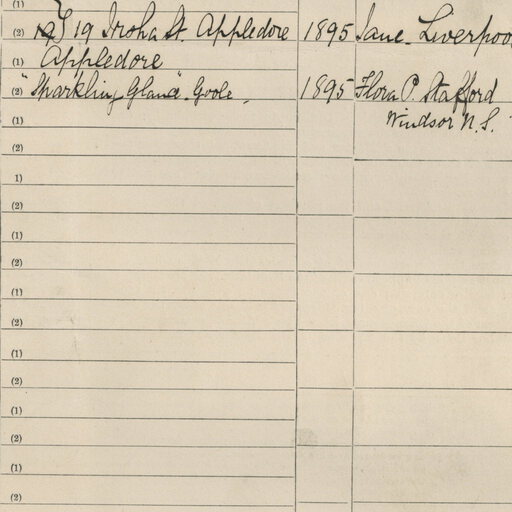 (1)
(2) 19 Iroha St. Appledore 1895 Jane - Liverpoo
(1) Appledore
(2) "Sparkling Glance" Goole. 1895 Flora P. Stafford
(1) Windsor N.S.
(2)
1)
(2)
(1)
(2)
(1)
(2)
(1)
(2)
(1)
(2)
(1)
(2)